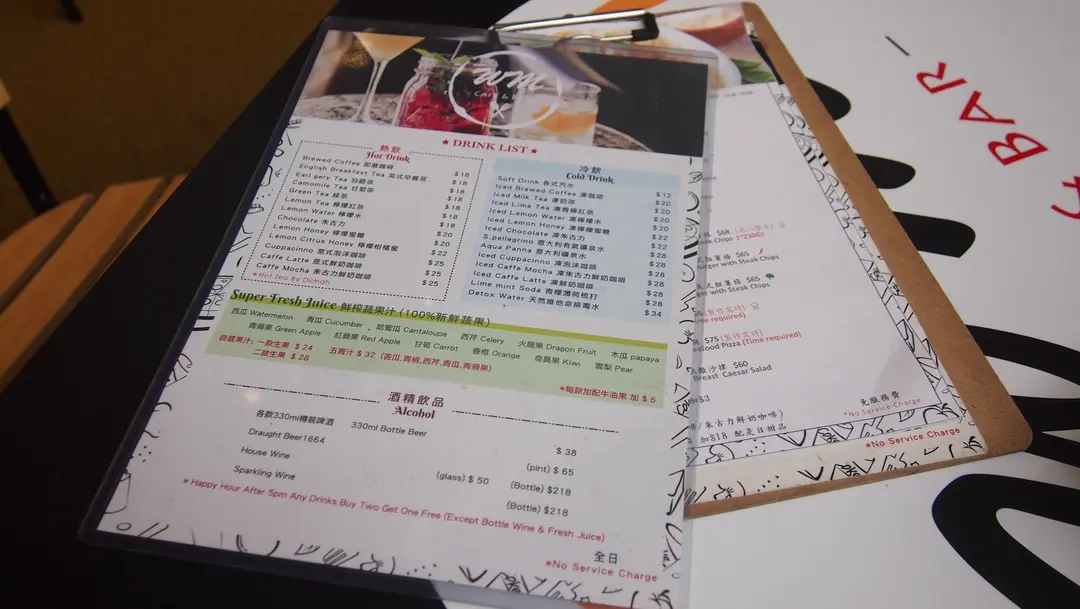 WM
★ DRINK LIST ★
熱飲
Hot Drink
Brewed Coffee 即磨咖啡 $18
English Breakfast Tea 英式早餐茶 $18
Earl gery Tea 伯爵茶 $18
Camomile Tea 甘菊茶 $18
Green Tea 綠茶 $18
Lemon Tea 檸檬紅茶 $18
Lemon Water 檸檬水
Chocolate 朱古力
Lemon Honey 檸檬蜜糖
Lemon Citrus Honey 檸檬柑橘蜜
Cuppacino 意式泡沫咖啡
Caffe Latte 意式鮮奶咖啡 $25
Caffe Mocha 朱古力鮮奶咖啡 $25
*Hot Tea By Dilmah
冷飲
Cold Drink
Soft Drink 各式汽水 $12
Iced Brewed Coffee 凍咖啡 $20
Iced Milk Tea 凍奶茶 $20
Iced Lime Tea 凍青檸紅茶 $20
Iced Lemon Water 凍檸檬水 $20
Iced Lemon Honey 凍檸檬蜜糖 $22
Iced Chocolate 凍朱古力 $22
S.pellegrino 意大利有氣礦泉水 $28
Aqua Panna 意大利礦泉水 $28
Iced Cuppacinno 凍泡沫咖啡 $28
Iced Caffe Mocha 凍朱古力鮮奶咖啡 $28
Iced Caffe Latte 凍鮮奶咖啡 $28
Lime mint Soda 青檸薄荷梳打 $28
Detox Water 天然維他命排毒水 $34
Super Fresh Juice 鮮榨蔬果汁 (100%新鮮蔬果)
西瓜 Watermelon 青瓜 Cucumber 哈蜜瓜 Cantaloupe 西芹 Celery 火龍果 Dragon Fruit 木瓜 papaya
青蘋果 Green Apple 紅蘋果 Red Apple 甘筍 Carrot 香橙 Orange 奇異果 Kiwi 雪梨 Pear
自選果汁: 一款生果 $ 24 五青汁 $ 32 (苦瓜,青椒,西芹,青瓜,青蘋果)
二款生果 $ 28
*每款加配牛油果 加 $ 6
酒精飲品
Alcohol
各款330ml樽裝啤酒 330ml Bottle Beer $ 38
Draught Beer1664 (pint) $ 65
House Wine (glass) $ 50 (Bottle) $218
Sparkling Wine (Bottle) $218
* Happy Hour After 5pm Any Drinks Buy Two Get One Free (Except Bottle Wine & Fresh Juice)
全日
*No Service Charge
$68
Chips (~230G)
$65
with Steak Chips
$65
with Steak Chips
(製作需時)
(Time required)
$75 (製作需時)
Pizza (Time required)
沙律 $60
Breast Caesar Salad
$3
朱古力鮮奶咖啡)
加$18 配是日甜品
免服務費
*No Service Charge
*No Service Charge
& BAR